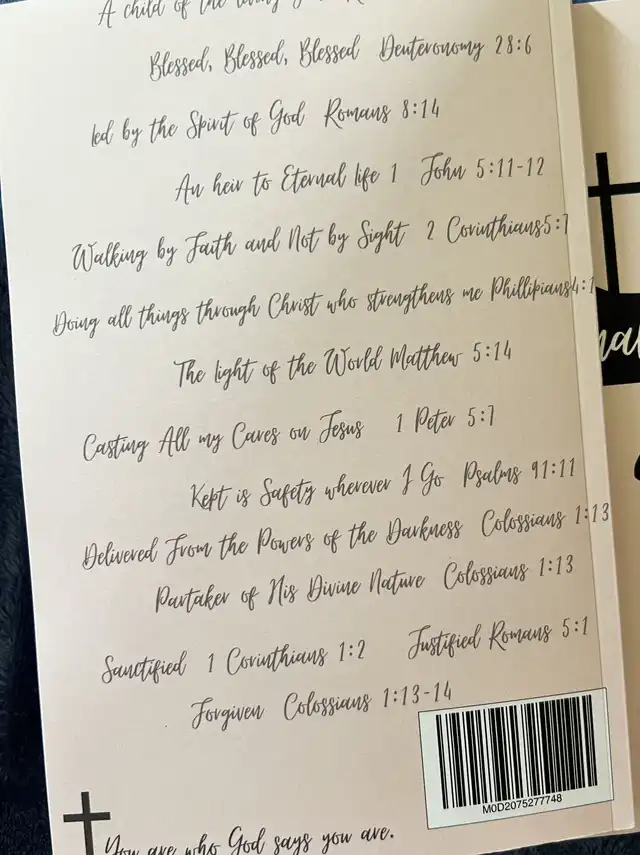 A child of the living
Blessed, Blessed, Blessed Deuteronomy 28:6
led by the Spirit of God Romans 8:14
An heir to Eternal life 1 John 5:11-12
Walking by Faith and Not by Sight 2 Corinthians5:7
Doing all things through Christ who strengthens me Phillipians4:1
The light of the World Matthew 5:14
Casting All my Cares on Jesus 1 Peter 5:7
Kept is Safety wherever I Go Psalms 91:11
Delivered From the Powers of the Darkness Colossians 1:13
Partaker of His Divine Nature Colossians 1:13
Sanctified 1 Corinthians 1:2 Justified Romans 5:1
Forgiven Colossians 1:13-14
M0D2075277748
You are who God says you are.